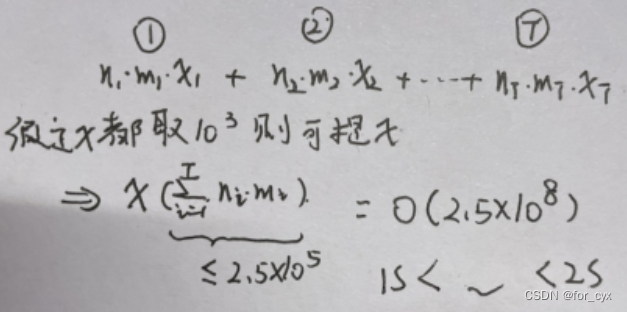 ① ② Ⓣ
n₁·m₁·x₁ + n₂·m₂·x₂ + ··· + n_T·m_T·x_T
假定x都取10³则可提x
⇒ x(∑_{i=1}^{T} n_i·m_i) = O(2.5×10⁸)
≤ 2.5×10⁵ 1S < ~ < 2S
CSDN @for_cyx